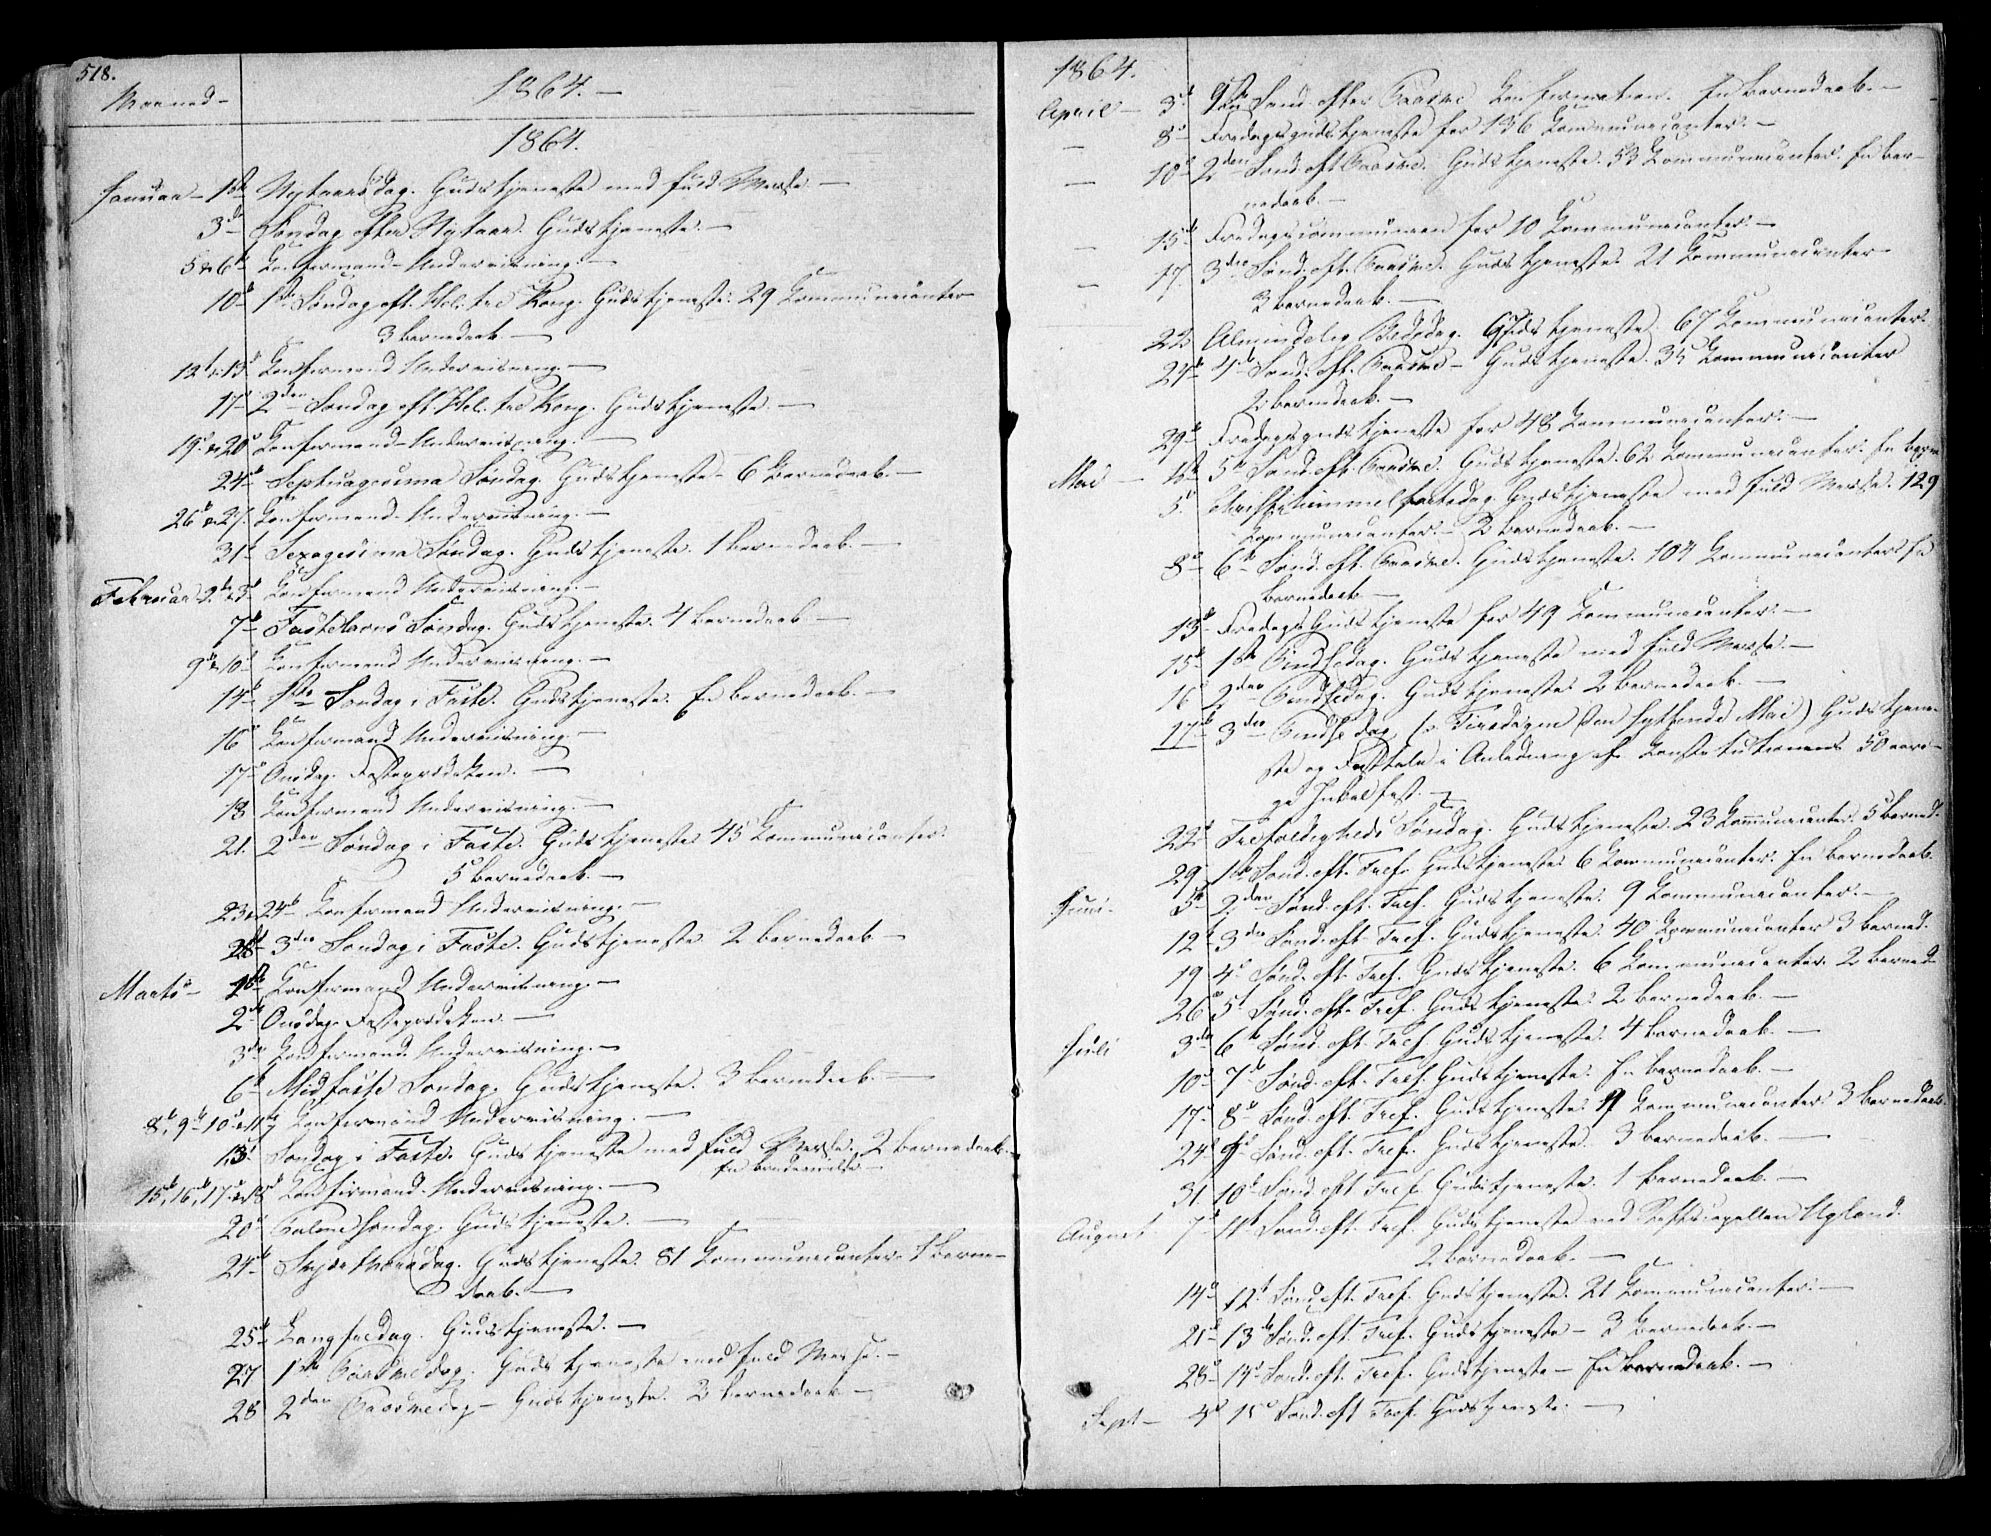 518.
Maaned –
1864. –
1864.
Januar – 1ste Nytaarsdag. Gudstjeneste med fuld Messe. –
3die Søndag efter Nytaar. Gudstjeneste. –
5 & 6te Konfirmand-Underviisning. –
10de 1ste Søndag eft. Hel. tre Kong. Gudstjeneste. 29 Kommunicanter
3 barnedaab –
12 & 13 Konfirmand Underviisning –
17de 2den Søndag eft. Hel. tre Kong. Gudstjeneste. –
19de & 20de Konfirmand-Underviisning. –
24de Septuagesima Søndag. Gudstjeneste – 6 Barnedaab. –
26de & 27. Konfirmand-Underviisning. –
31te Sexagesima Søndag. Gudstjeneste. 1 barnedaab. –
Februar 2den & 3die Konfirmand Underviisning. –
7de Fastelavns Søndag. Gudstjeneste. 4 barnedaab –
9de & 10de Konfirmand Underviisning. –
14de 1ste Søndag i Faste. Gudstjeneste. En barnedaab. –
16de Konfirmand Underviisning –
17de Onsdag. Fasteprædiken. –
18 Konfirmand Underviisning. –
21. 2den Søndag i Faste. Gudstjeneste 45 Kommunicanter.
5 barnedaab. –
23 & 24de Konfirmand Underviisning. –
28de 3die Søndag i Faste. Gudstjeneste 2 barnedaab –
Marts – 1ste Konfirmand Underviisning. –
2den Onsdag Fasteprædiken. –
3die Konfirmand. Underviisning. –
6te Midfaste Søndag. Gudstjeneste. 3 barnedaab. –
8de, 9de 10de & 11te Konfirmand Underviisning. –
13de Søndag i Faste. Gudstjeneste med fuld Messe. 2 barnedaab.
En
15de, 16de, 17de & 18de Konfirmand-Underviisning. –
20de Palmesøndag. Gudstjeneste. –
24de Skjærthorsdag. Gudstjeneste. 81 Kommunicanter 1 barne-
daab. –
25de Langfredag. Gudstjeneste. –
27 1ste Paaskedag. Gudstjeneste med fuld Messe. –
28 2den Paaskedag – Gudstjeneste. 2 barnedaab –
1864.
April – 3die 1ste Sønd. efter Paaske Konfirmation. En barnedaab. –
8de Fredagsgudstjeneste for 136 Kommunicanter. –
10de 2den Sønd. eft. Paaske. Gudstjeneste. 53 Kommunicanter. En bar-
nedaab. –
15de Fredagscommunion for 10 Kommunicanter. –
17. 3die Sønd. eft. Paaske. Gudstjeneste. 21 Kommunicanter –
2 barnedaab. –
22 Almindelig Bededag. Gudstjeneste. 67 Kommunicanter.
24de 4de Sønd. eft. Paaske – Gudstjeneste. 35 Kommunicanter
2 barnedaab. –
29de Fredagsgudstjeneste for 48 Kommunicanter. –
Mai – 1ste 5te Sønd. eft. Paaske. Gudstjeneste. 62 Kommunicanter. En barn.
5. Christi himmelfartsdag Gudstjeneste med fuld Messe. 129
Kommunicanter. – 2 barnedaab. –
8de 6te Sønd. eft. Paaske. Gudstjeneste. 104 Kommunicanter. En
barnedaab –
13de Fredags Gudstjeneste for 49 Kommunicanter. –
15de 1ste Pindsedag. Gudstjeneste med fuld Messe. –
16 2den Pindsedag. Gudstjeneste 2 barnedaab. –
17de 3die Pindsedag (o: Tirsdagen den syttende Mai) Gudstjene-
ste og Festtale i Anledning af Konstitutionens 50 aari-
ge Jubelfest. –
22de Trefoldigheds Søndag. Gudstjeneste. 23 Kommunicanter 5 barned.
29 1ste Sønd. eft. Tref. Gudstjeneste 6 Kommunicanter. En barnedaab.
Juni. 5te 2den Sønd. eft. Tref. Gudstjeneste. 9 Kommunicanter. –
12te 3die Sønd. eft. Tref. Gudstjeneste. 40 Kommunicanter 3 barned.
19 4de Sønd. eft. Tref. Gudstjeneste. 6 Kommunicanter. 2 barned.
26de 5te Sønd. eft. Tref. Gudstjeneste. 2 barnedaab. –
Juli 3die 6te Sønd. eft. Tref. Gudstjeneste. 4 barnedaab. –
10de 7de Sønd. eft. Tref. Gudstjeneste. En barnedaab. –
17de 8de Sønd. eft. Tref. Gudstjeneste. 9 Kommunicanter 3 barnedaab.
24de 9de Sønd. eft. Tref. Gudstjeneste. 3 barnedaab. –
31 10de Sønd. eft. Tref. Gudstjeneste. 1 barnedaab. –
August. 7de 11te Sønd. eft. Tref. Gudstjeneste ved Ugland.
2 barnedaab. –
14de 12te Sønd. eft. Tref. Gudstjeneste. 21 Kommunicanter. –
21de 13de Sønd. eft. Tref. Gudstjeneste – 3 Barnedaab. –
28de 14de Sønd. eft. Tref. Gudstjeneste – En barnedaab. –
Sept – 4de 15de Sønd. eft Tref. Gudstjeneste. –